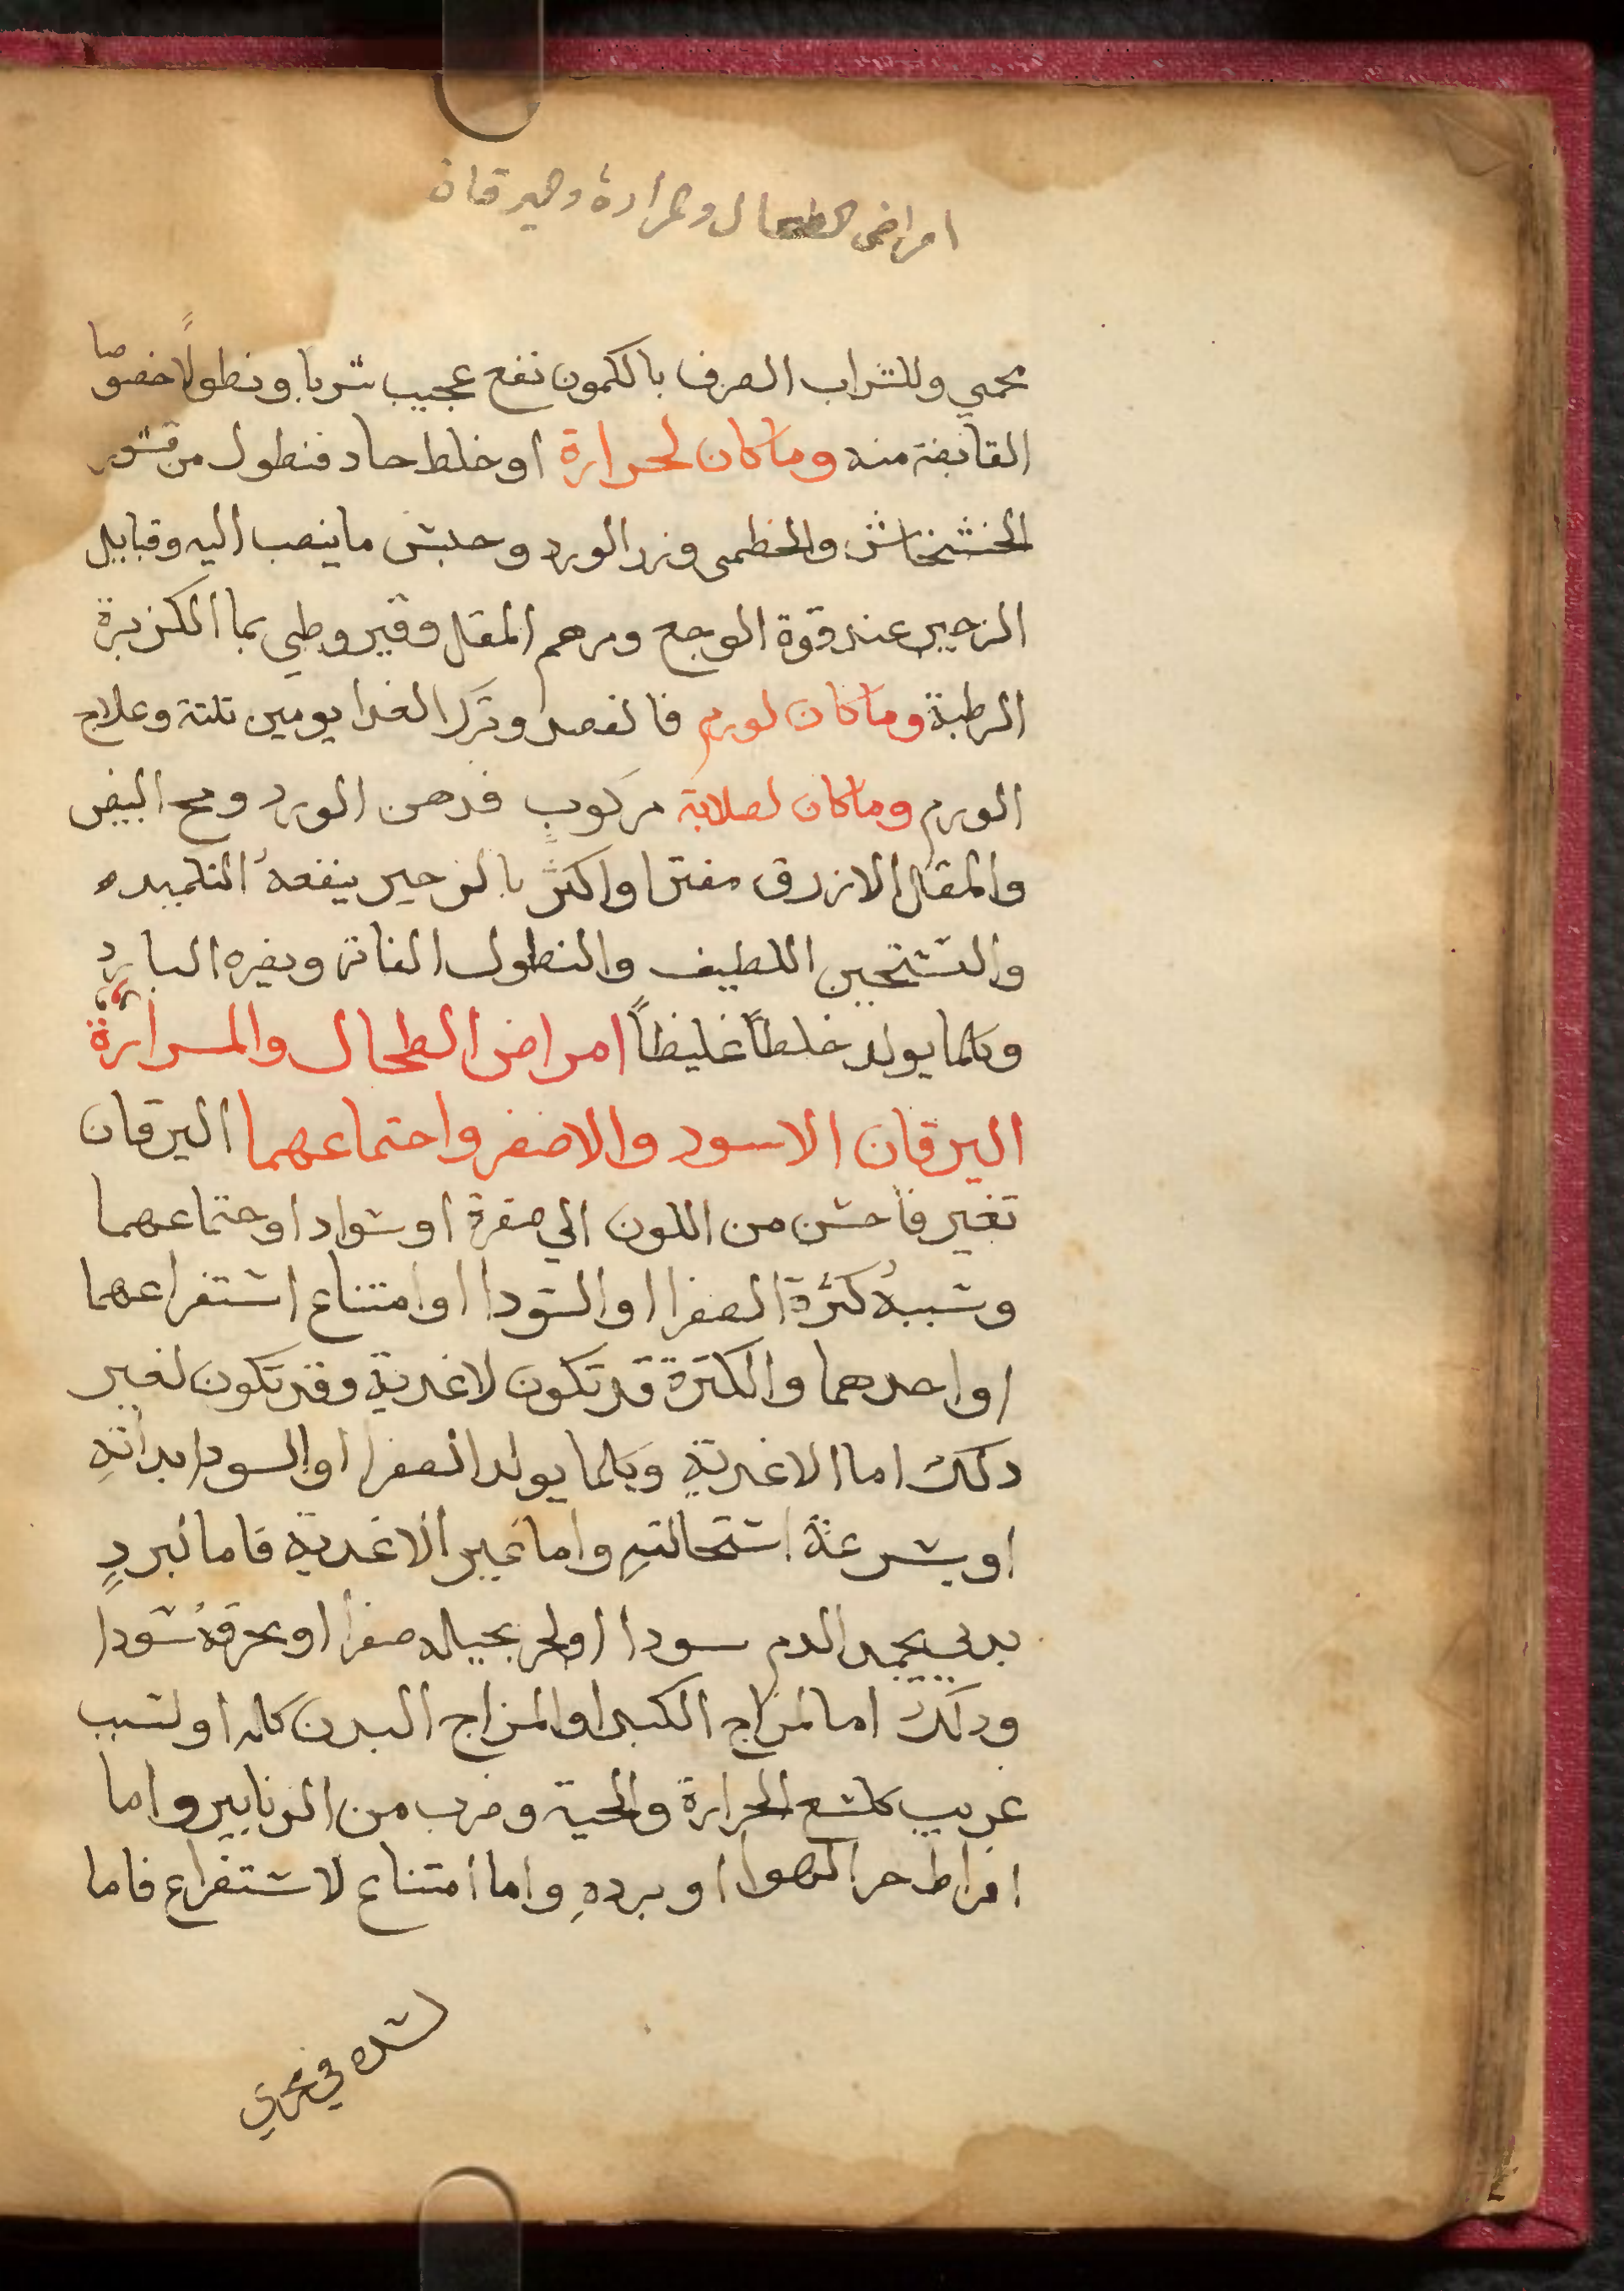 امراض الطحال والمرارة واليرقان
محمي وللشراب الصرف بالكمون نفع عجيب شربا ونطولًا خصوصا
القابضة منه وماكان لحرارة او خلط حاد فنطول من قشور
الخشخاش والخطمى وزر الورد وحبس ماينصب اليه وقبايل
الزحير عند قوة الوجع ومرهم المقل وقيروطي بما الكزبرة
الرطبة وماكان لورم فالفصد وترك الغدا يومين ثلثة وعلاج
الورم وماكان لصلابة مركوبٍ فدهن الورد ومح البيض
والمقل الازرق مفترا واكثر بالزحير ينفعهُ التكميده
والتسخين اللطيف والنطول الفاتر ويضره البارد
وكلما يولد خلطاً غليظاً امراض الطحال والمرارة
اليرقان الاسود والاصفر واجتماعهما اليرقان
تغير فاحش من اللون الي صفرة او سواد او جتماعهما
وسببهُ كثرة الصفرا او السودا او امتناع استفراعهما
او احدهما والكثرة قد تكون لاغدية وقد تكون لغير
دلك اما الاغدية وكلما يولد الصفرا او السودا بداته
او بسرعة استحالتهِ واما غير الاغدية فاما لبردٍ
بدني يجمد الدم سودا او لحر يحيله صفرا او يحرقهُ سودا
ودلك اما لمزاج الكبد او المزاج البدن كله او لسبب
غريب كلسع الجرارة والحية وضرب من الزنابير واما
افراط حر الهوا او بردهِ واما امتناع لاستفراع فاما
لسده في مجري